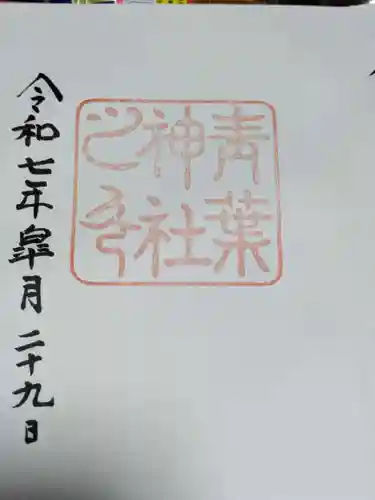 青葉
神社
之印
令和七年皐月二十九日